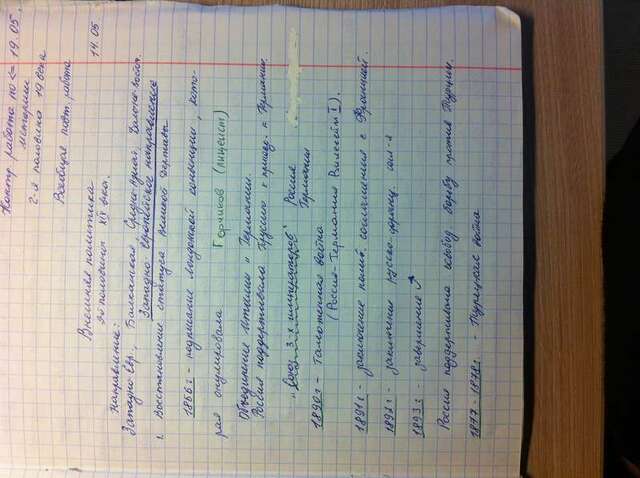 Контр работа по 19.05.
истории
2-я половина 19 века
Вообщие повт. работа 14.05
Внешняя политика
2й половины XIX века.
Направление:
Западно Евр., Балканская, Средн
Западно Европейское направление
1. Восстановление статуса великой державы
1866г - подписание Лондонской конвенции, кото-
рая анулировала Горчиков (лицеист)
Объединение Италии и Германии.
Россия поддерживала Пруссию к Германии.
"Союз 3-х императоров" Россия
Германия
1890г - таможенная война
(Россия - Германия Вильгельм I).
1891г - заключение соглашения с Францией.
1892г - заключения русско-франц. союз-а
1893г - завершение
Россия поддерживала свободу борьбу против Турции.
1877-1878г. - Турецкая война